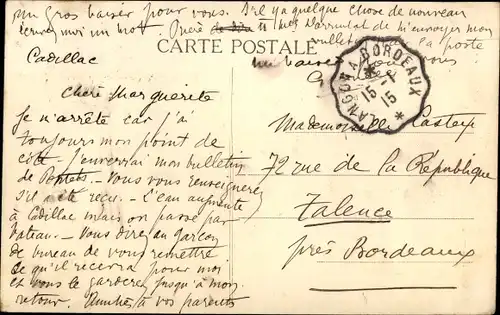 un Gros baiser pour vous. S'il y a quelque chose de nouveau
écrivez moi un mot. Prière de m'envoyer mon
bulletin par la poste
CARTE POSTALE
un baiser
Cadillac
LANGON A BORDEAUX
15 - 1
15
Chère Marguerite
Je m'arrête car j'ai
toujours mon point de
côté. J'enverrai mon bulletin
de Portets. Vous vous renseignerez
s'il a été reçu. L'eau augmente
à Cadillac mais on passe par
bateau. Vous direz au garçon
de bureau de vous remettre
ce qu'il recevra pour moi
et vous le garderez jusqu'à mon
retour. Amitiés à vos parents
Mademoiselle Castex
72 rue de la République
Talence
près Bordeaux